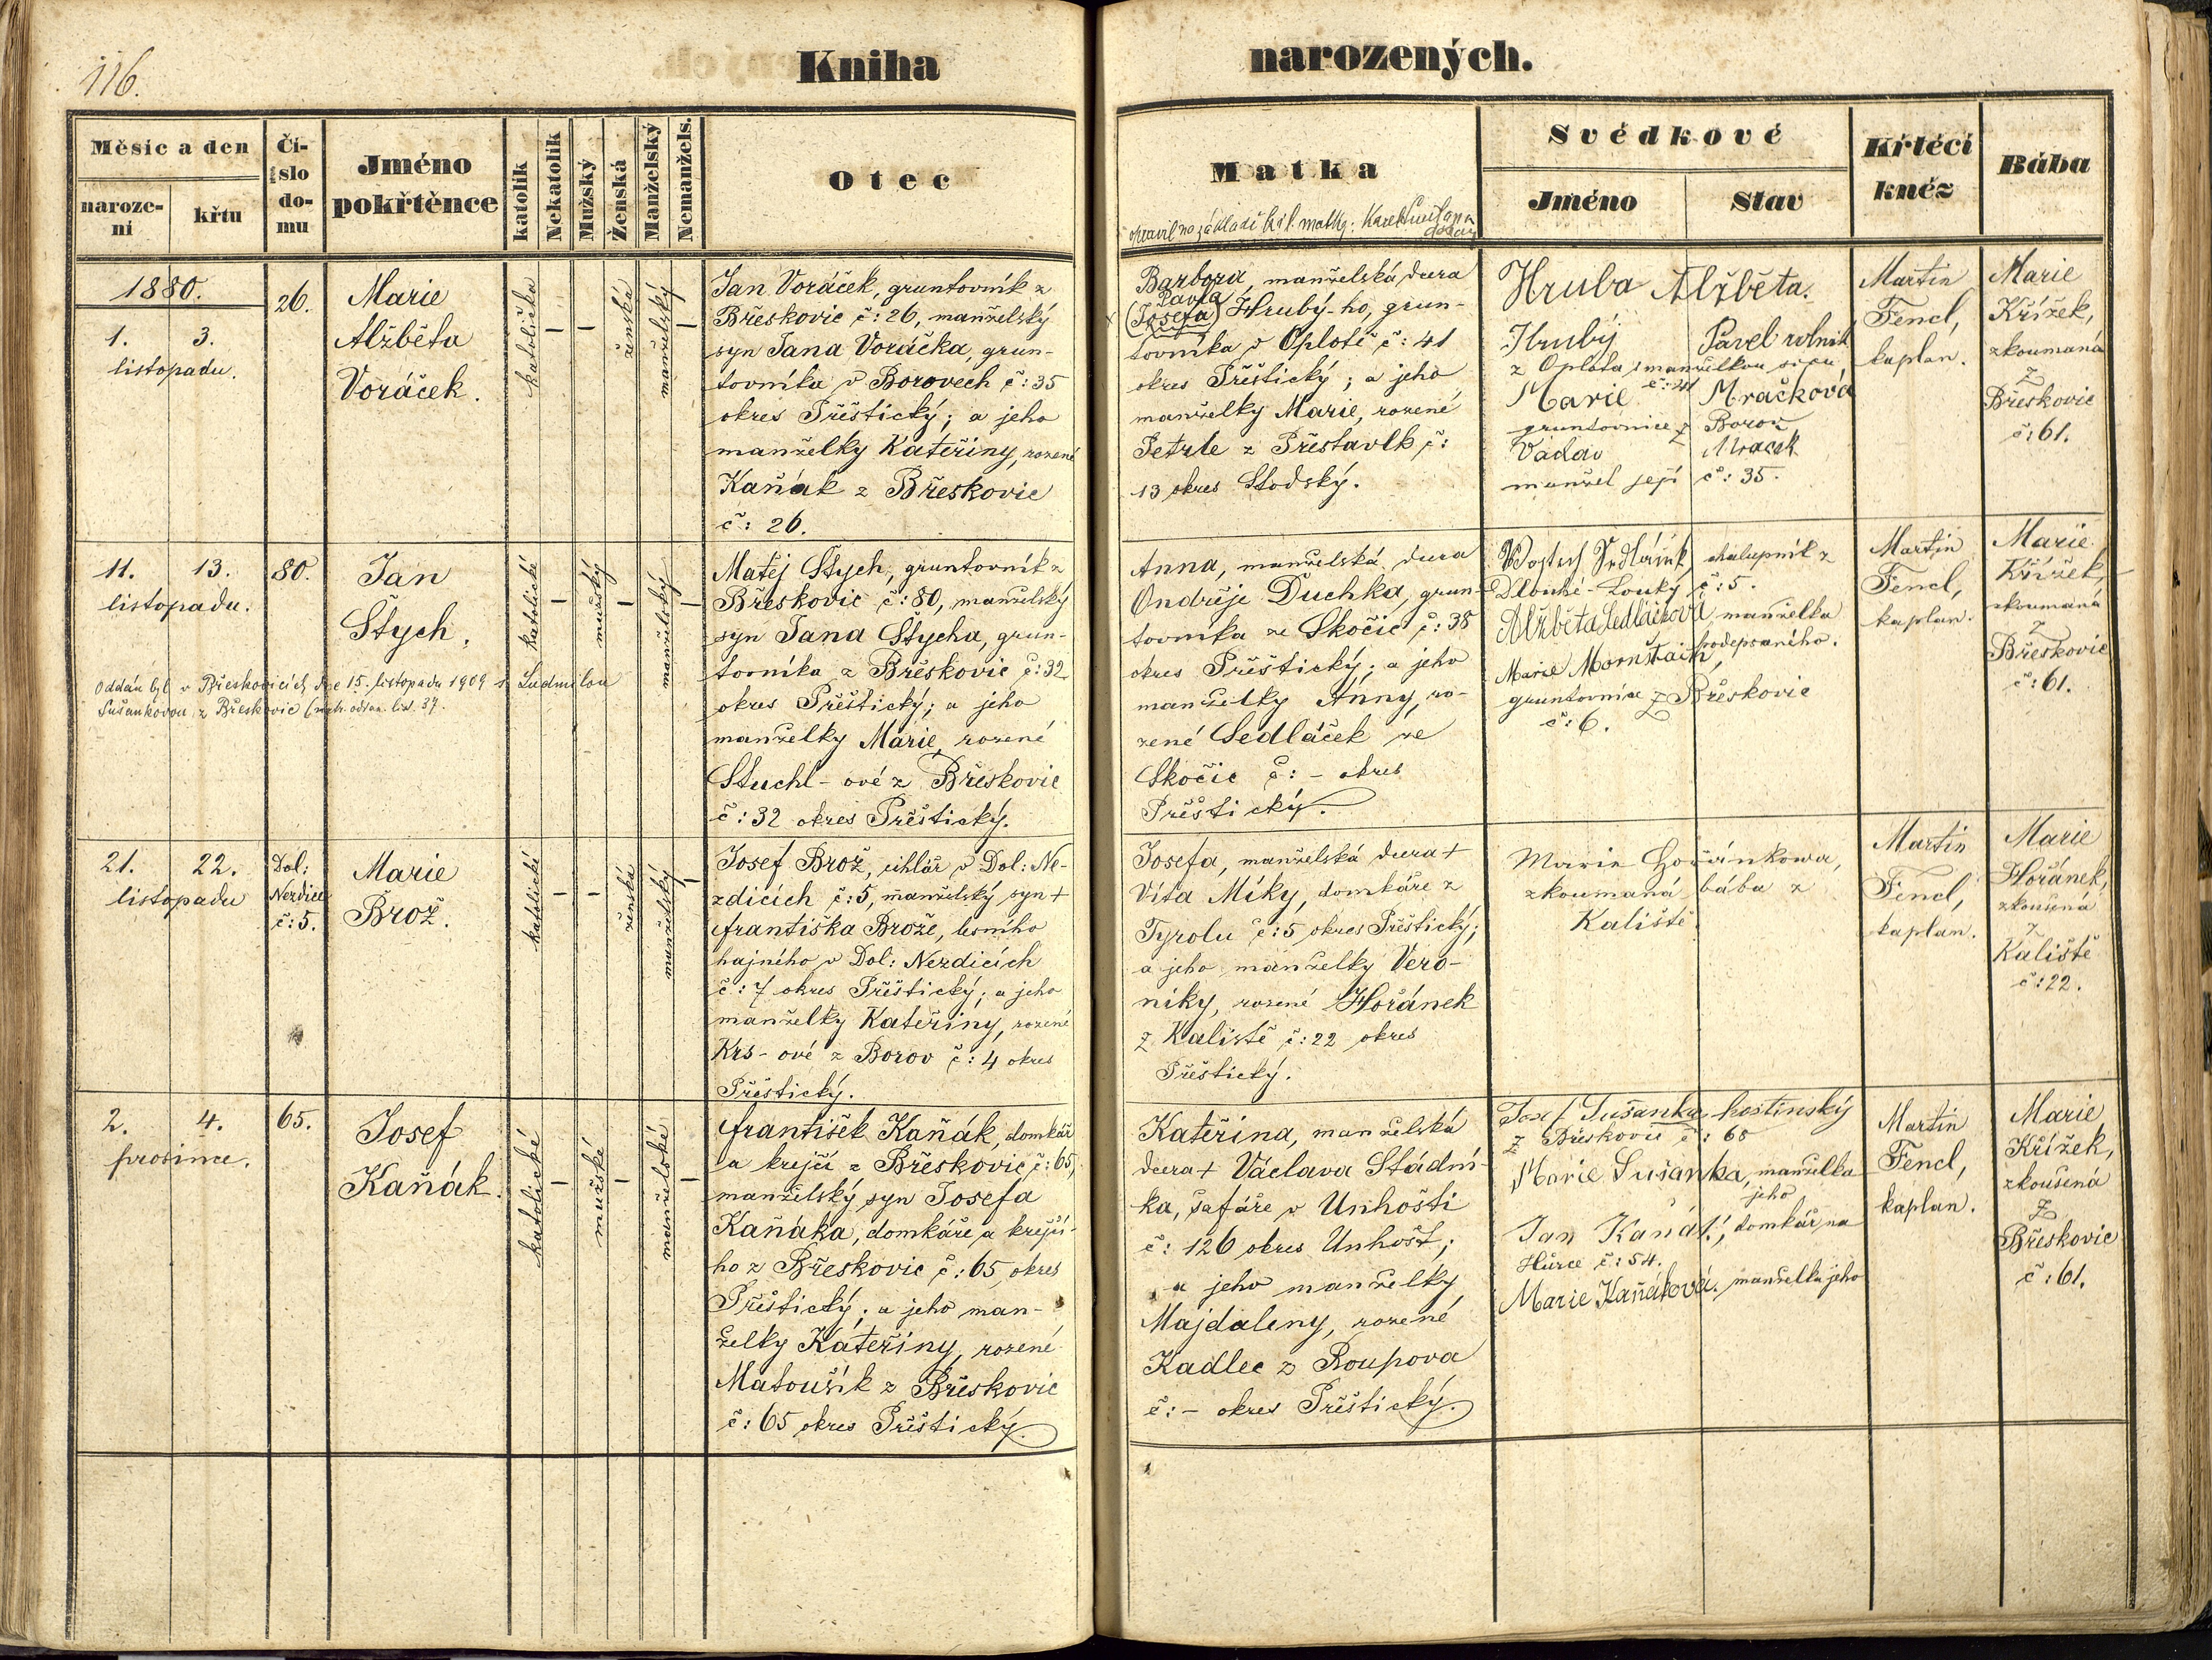 116.
Kniha
narozených.
Měsíc a den
naroze-
ní
křtu
Čí-
slo
do-
mu
Jméno
pokřtěnce
katolík
Nekatolík
Mužský
Ženská
Manželský
Nemanžels.
Otec
Matka
Svědkové
Jméno
Stav
Křtěcí
kněz
Bába
opravil na základě křl. matky: Karel
1880.
1. 3.
listopadu.
26.
Marie
Alžběta
Voráček.
katolička
–
–
ženská
manželský
–
Jan Voráček, gruntovník z
Břeskovic č: 26, manželský
syn Jana Voráčka, grun-
tovníka v Borovech č: 35
okres Přeštický; a jeho
manželky Kateřiny, rozené
Kaňák z Břeskovic
č: 26.
Barbora, manželská dcera
Pavla
(Josefa) Hrubý-ho, grun-
tovníka v Oplotě č: 41
okres Přeštický; a jeho
manželky Marie, rozené
Petrle z Přestavlk č:
13 okres Stodský.
Hruba Alžběta.
Hrubý Pavel rolník
z Oplota s manželkou
č: 41
Marie Mračková
gruntovnice z Borov
Václav Mracek
manžel její č: 35.
Martin
Fencl,
kaplan.
Marie
Křížek,
zkoumaná
z
Břeskovic
č: 61.
11. 13.
listopadu.
80.
Jan
Štych.
katolické
–
mužský
–
manželský
–
Oddán byl v Břeskovicích dne 15. listopadu 1909 s Ludmilou
Sušankovou z Břeskovic (matr. oddan. list. 37.
Matěj Štych, gruntovník z
Břeskovic č: 80, manželský
syn Jana Štycha, grun-
tovníka z Břeskovic č: 32
okres Přeštický; a jeho
manželky Marie, rozené
Stuchl-ové z Břeskovic
č: 32 okres Přeštický.
Anna, manželská dcera
Ondřeje Duchka, grun-
tovníka ze Skočic č: 38
okres Přeštický; a jeho
manželky Anny, ro-
zené Sedláček ze
Skočic č: – okres
Přeštický.
Wojtech Sedláček chalupník z
Dlouhé-Louky č: 5.
Alžběta Sedláčková, manželka
podepsaného.
Marie
gruntovnice z Břeskovic
č: 6.
Martin
Fencl,
kaplan.
Marie
Křížek,
zkoumaná
z
Břeskovic
č: 61.
21. 22.
listopadu
Dol:
Nezdice
č: 5.
Marie
Brož.
katolické
–
–
ženská
manželský
–
Josef Brož, cihlář v Dol: Ne-
zdicích č: 5, manželský syn +
Františka Brože, lesního
hajného v Dol: Nezdicích
č: 7 okres Přeštický; a jeho
manželky Kateřiny, rozené
Krs-ové z Borov č: 4 okres
Přeštický.
Josefa, manželská dcera +
Víta Míky, domkáře z
Tyrolu č: 5 okres Přeštický;
a jeho manželky Vero-
niky, rozené Hořánek
z Kaliště č: 22 okres
Přeštický.
Marie Hořánkowa,
zkoumaná bába z
Kaliště.
Martin
Fencl,
kaplan.
Marie
Hořánek,
zkoušená
z
Kaliště
č: 22.
2. 4.
prosince.
65.
Josef
Kaňák.
katolické
–
mužské
–
manželské
–
František Kaňák, domkář
a krejčí z Břeskovic č: 65,
manželský syn Josefa
Kaňáka, domkáře a krejčí-
ho z Břeskovic č: 65 okres
Přeštický; a jeho man-
želky Kateřiny, rozené
Matoušík z Břeskovic
č: 65 okres Přeštický.
Kateřina, manželská
dcera + Václava Stádní-
ka, šafáře v Unhošti
č: 126 okres Unhošť;
a jeho manželky
Majdaleny, rozené
Kadlec z Roupova
č: – okres Přeštický.
Josef Sušanka hostinský
z Břeskovic č: 68
Marie Sušanka, manželka
jeho
Jan Kaňák, domkář na
Hůrce č: 54.
Marie Kaňáková, manželka jeho
Martin
Fencl,
kaplan.
Marie
Křížek,
zkoušená
z
Břeskovic
č: 61.